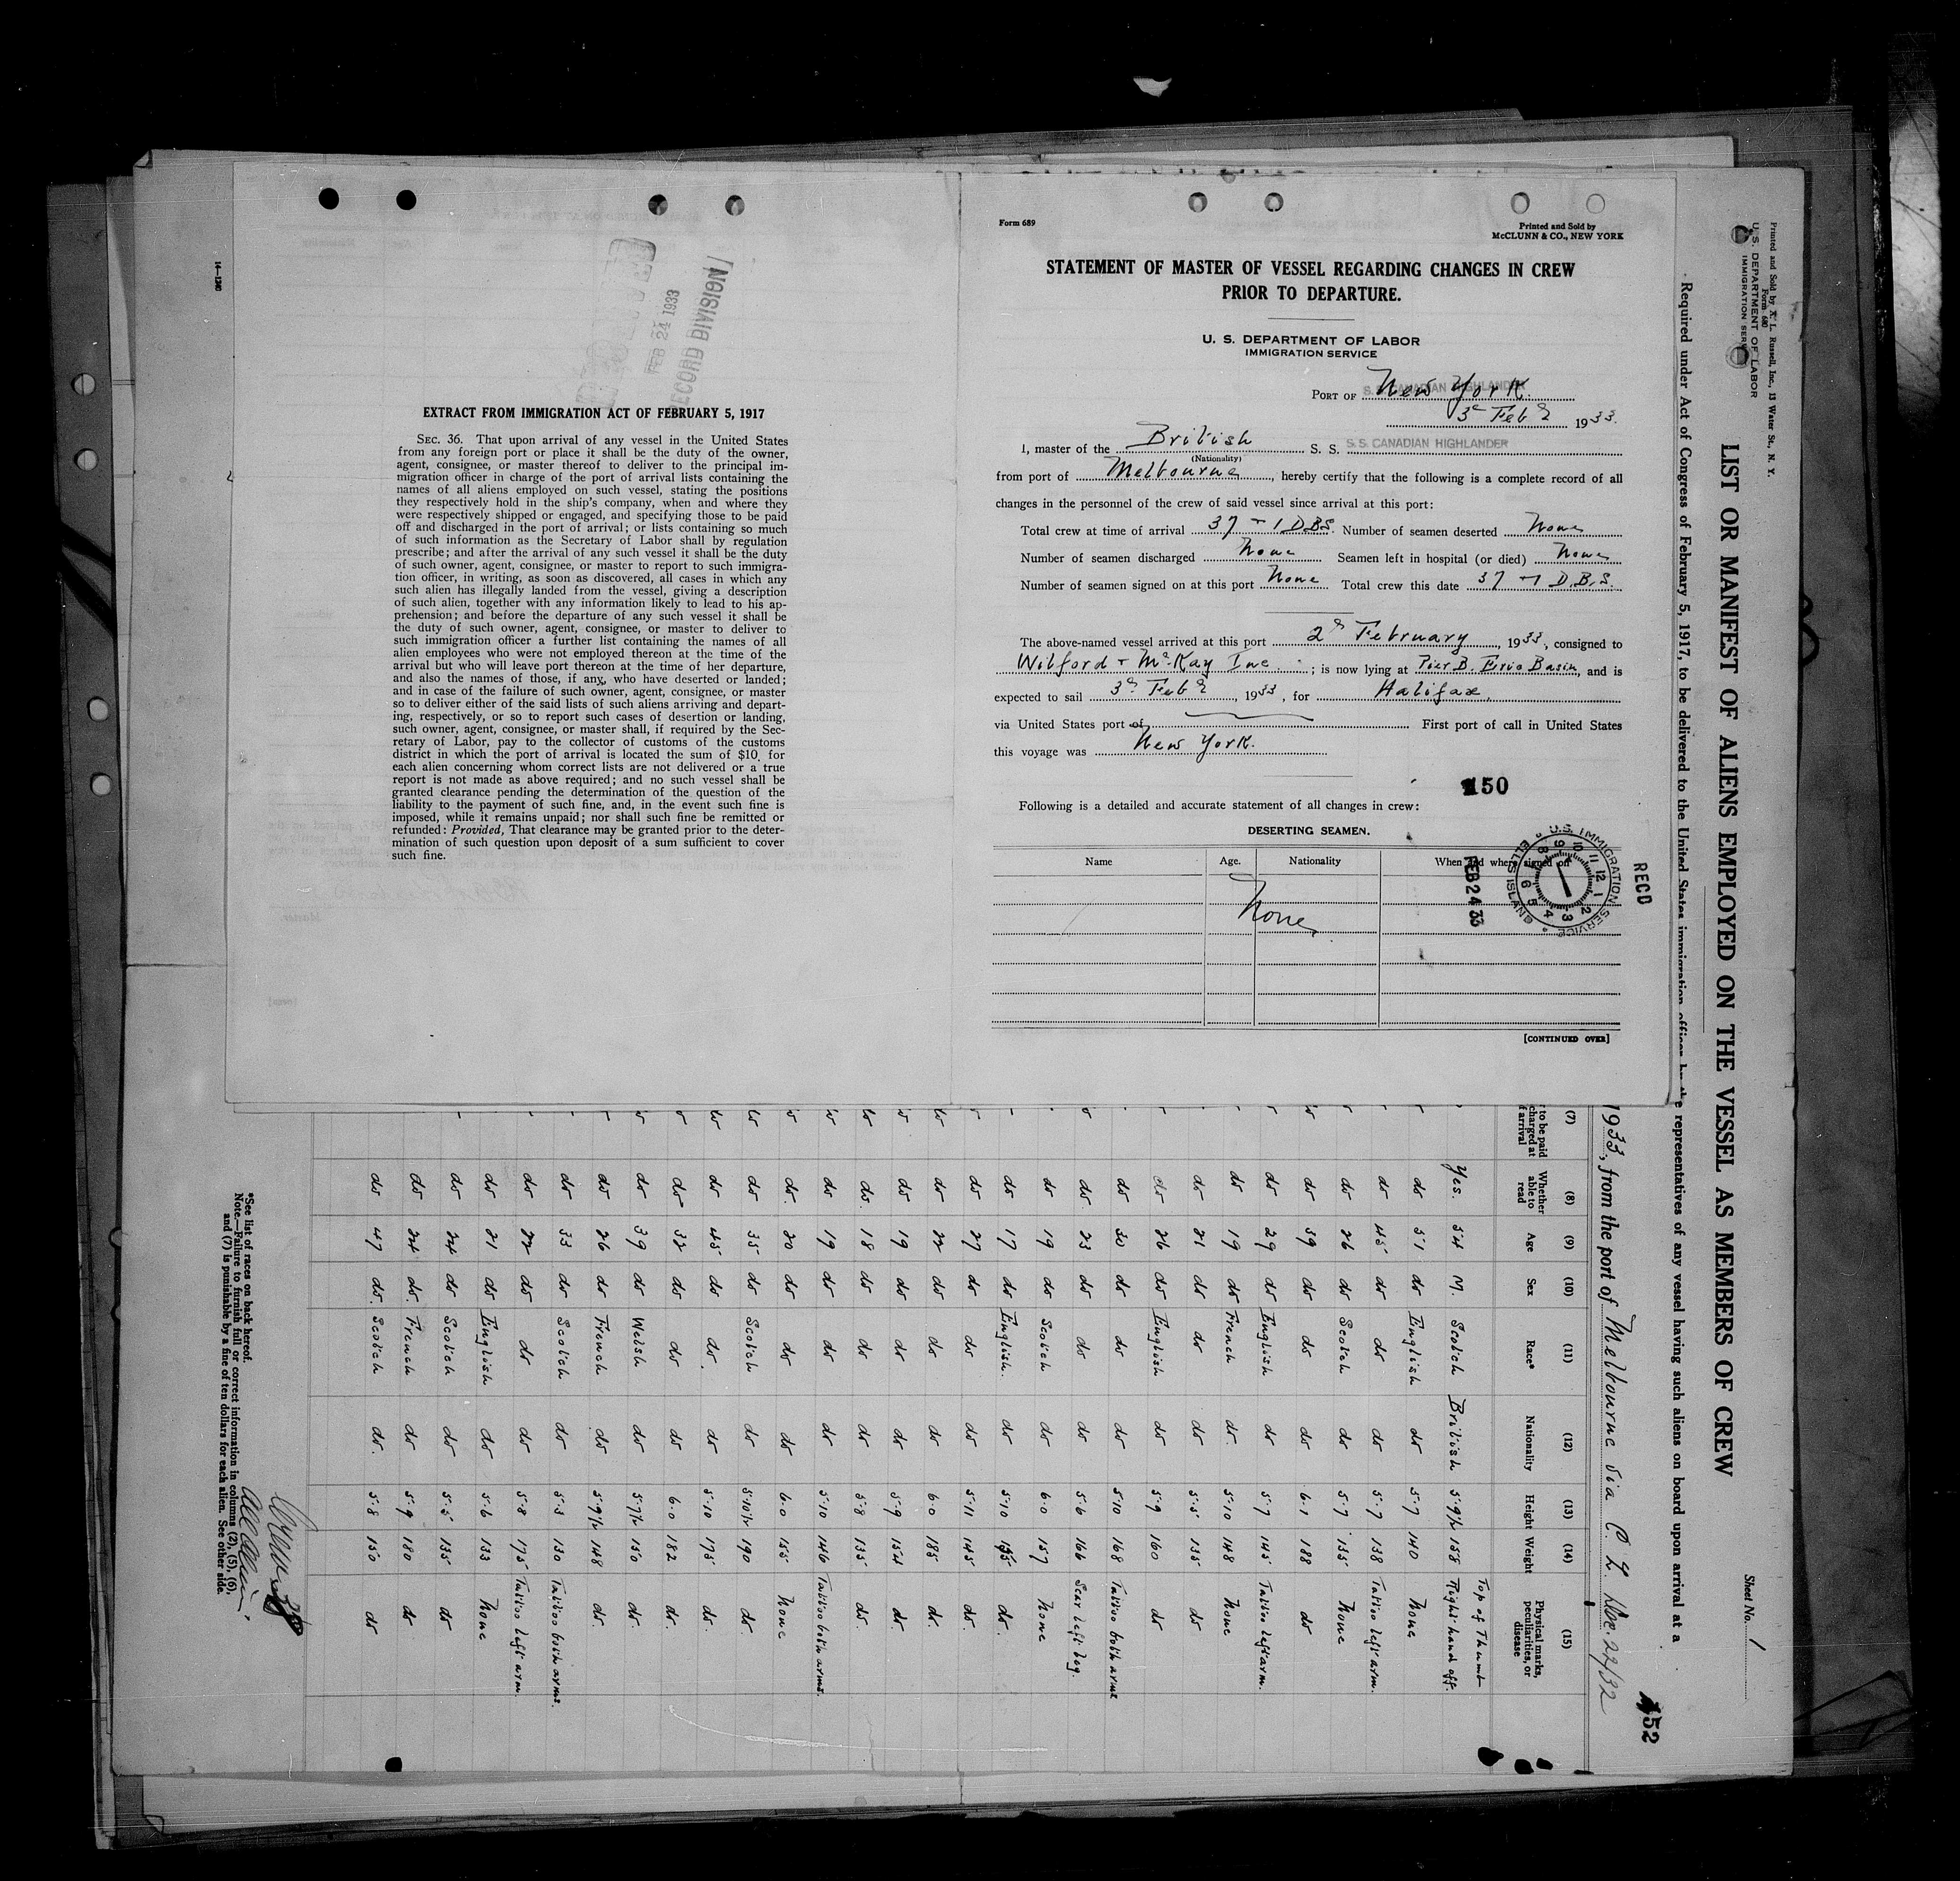 14—1240
FEB 24 1933
RECORD DIVISION
EXTRACT FROM IMMIGRATION ACT OF FEBRUARY 5, 1917
SEC. 36. That upon arrival of any vessel in the United States
from any foreign port or place it shall be the duty of the owner,
agent, consignee, or master thereof to deliver to the principal im-
migration officer in charge of the port of arrival lists containing the
names of all aliens employed on such vessel, stating the positions
they respectively hold in the ship's company, when and where they
were respectively shipped or engaged, and specifying those to be paid
off and discharged in the port of arrival; or lists containing so much
of such information as the Secretary of Labor shall by regulation
prescribe; and after the arrival of any such vessel it shall be the duty
of such owner, agent, consignee, or master to report to such immigra-
tion officer, in writing, as soon as discovered, all cases in which any
such alien has illegally landed from the vessel, giving a description
of such alien, together with any information likely to lead to his ap-
prehension; and before the departure of any such vessel it shall be
the duty of such owner, agent, consignee, or master to deliver to
such immigration officer a further list containing the names of all
alien employees who were not employed thereon at the time of the
arrival but who will leave port thereon at the time of her departure,
and also the names of those, if any, who have deserted or landed;
and in case of the failure of such owner, agent, consignee, or master
so to deliver either of the said lists of such aliens arriving and depart-
ing, respectively, or so to report such cases of desertion or landing,
such owner, agent, consignee, or master shall, if required by the Sec-
retary of Labor, pay to the collector of customs of the customs
district in which the port of arrival is located the sum of $10 for
each alien concerning whom correct lists are not delivered or a true
report is not made as above required; and no such vessel shall be
granted clearance pending the determination of the question of the
liability to the payment of such fine, and, in the event such fine is
imposed, while it remains unpaid; nor shall such fine be remitted or
refunded: Provided, That clearance may be granted prior to the deter-
mination of such question upon deposit of a sum sufficient to cover
such fine.
Form 689
Printed and Sold by
McCLUNN & CO., NEW YORK
STATEMENT OF MASTER OF VESSEL REGARDING CHANGES IN CREW
PRIOR TO DEPARTURE.
U. S. DEPARTMENT OF LABOR
IMMIGRATION SERVICE
S.S. CANADIAN HIGHLANDER
PORT OF New York.
3d Feby 1933.
I, master of the British S. S. S.S. CANADIAN HIGHLANDER
(Nationality)
from port of Melbourne, hereby certify that the following is a complete record of all
changes in the personnel of the crew of said vessel since arrival at this port:
Total crew at time of arrival 37 - 1 D.B.S. Number of seamen deserted None
Number of seamen discharged None Seamen left in hospital (or died) None
Number of seamen signed on at this port None Total crew this date 37 - 1 D.B.S.
The above-named vessel arrived at this port 2d February, 1933, consigned to
Wilford & McKay Inc.; is now lying at Pier B. Erie Basin, and is
expected to sail 3d Feby, 1933, for Halifax
via United States port of First port of call in United States
this voyage was New York.
150
Following is a detailed and accurate statement of all changes in crew:
DESERTING SEAMEN.
Name Age. Nationality When and where signed on
None
FEB 24 33
U.S. IMMIGRATION SERVICE
ELLIS ISLAND
RECD
[CONTINUED OVER]
Printed and Sold by A. L. Russell, Inc., 13 Water St., N. Y.
Form 680
U. S. DEPARTMENT OF LABOR
IMMIGRATION SERVICE
Sheet No. 1
LIST OR MANIFEST OF ALIENS EMPLOYED ON THE VESSEL AS MEMBERS OF CREW
Required under Act of Congress of February 5, 1917, to be delivered to the United States immigration officer by the representatives of any vessel having such aliens on board upon arrival at a
152
1933, from the port of Melbourne via C. Z. Dec. 22/32
(7) (8) (9) (10) (11) (12) (13) (14) (15)
to be paid charged at arrival Whether able to read Age Sex Race* Nationality Height Weight Physical marks, peculiarities, or disease
Yes. 54 M. Scotch British 5-9½ 158 Top of Thumb Right hand off.
do 51 do English do 5-7 140 None
do 45 do do do 5-7 138 Tattoo left arm.
do 26 do Scotch do 5-7 135 None
do 39 do do do 6-1 188 do
do 29 do English do 5-7 145 Tattoo left arm.
do 19 do French do. 5-10 148 None
do 21 do do do 5-5 135 do
do 26 do English do 5-9 160 do
do 30 do do do 5-10 168 Tattoo both arms
do 23 do do do 5-6 166 Scar left leg.
do 19 do Scotch do 6-0 157 None
do 17 do English. do 5-10 do.
do 27 do do do 5-11 145 do.
do 22 do do do 6-0 185 do.
do 19 do do do 5-9 154 do.
do. 18 do do do 5-8 135 do.
do 19 do do do 5-10 146 Tattoo both arms.
do. 20 do do do 6-0 155 None
do 35 do Scotch do 5-10½ 190 do
do 45 do do. do 5-10 175 do.
do 32 do do do 6-0 182 do.
do 39 do Welsh do 5-7½ 150 do.
do 26 do French do. 5-9½ 148 do.
do 33 do Scotch do 5-3 130 Tattoo both arms.
do 22 do do do 5-8 175 Tattoo left arm.
do 21 do English do 5-6 133 None
do 24 do Scotch do 5-5 135 do
do 24 do. French do. 5-9 180 do
do 47 do. Scotch do. 5-8 150 do
*See list of races on back hereof.
Note.—Failure to furnish full or correct information in columns (2), (5), (6),
and (7) is punishable by a fine of ten dollars for each alien. See other side.